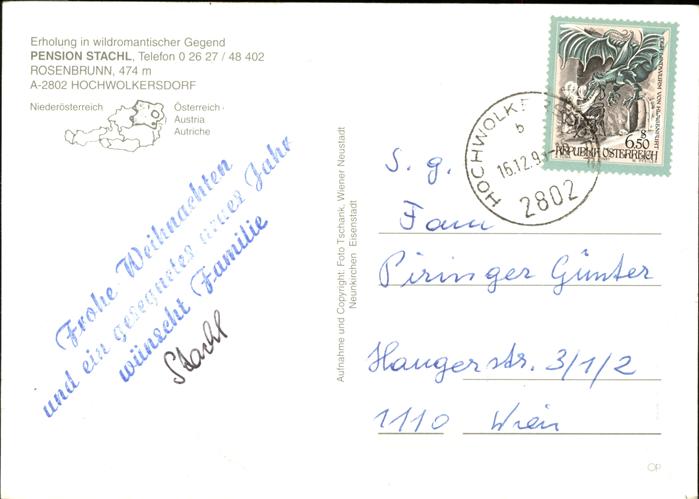 Erholung in wildromantischer Gegend
PENSION STACHL, Telefon 0 26 27 / 48 402
ROSENBRUNN, 474 m
A-2802 HOCHWOLKERSDORF
Niederösterreich
Österreich
Austria
Autriche
Frohe Weihnachten
und ein gesegnetes neues Jahr
wünscht Familie
Stachl
Aufnahme und Copyright: Foto Tschank, Wiener Neustadt
Neunkirchen Eisenstadt
HOCHWOLKE
b
16.12.9
2802
S
6.50
REPUBLIK ÖSTERREICH
S. g.
Fam
Piringer Günter
Haugerstr. 3/1/2
1110 Wien
OP